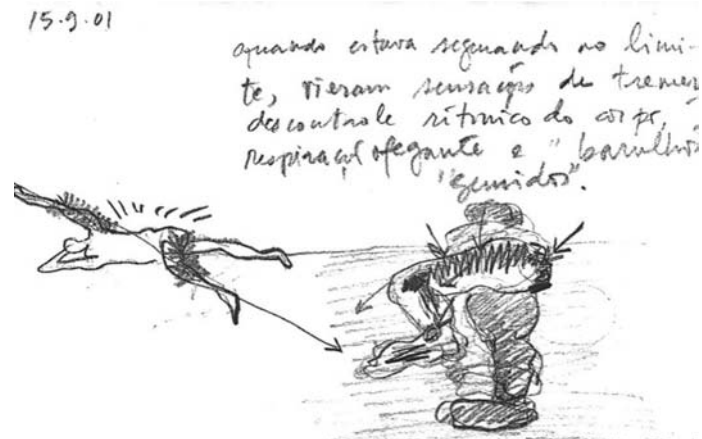 15.9.01
quando estava segurando no limi-
te, vieram sensações de tremer,
descontrole rítmico do corpo,
respiração ofegante e "barulhos
"gemidos".